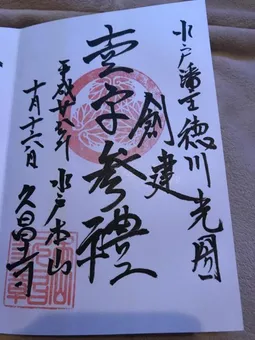 水戸藩主徳川光圀
創建
壹字参禮
平成廿八年 水戸本山
十月十六日 久昌寺